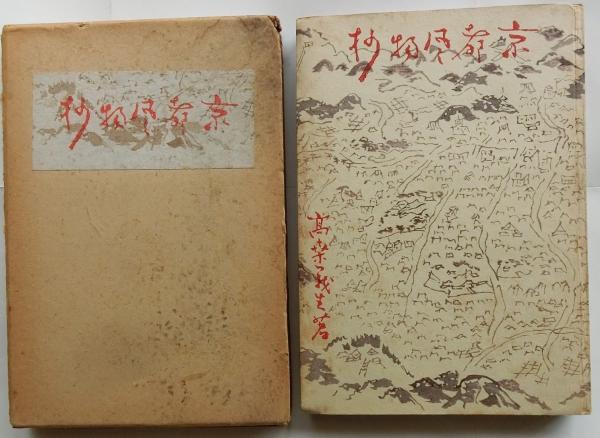 京都風物抄
京都風物抄
高桑義生著